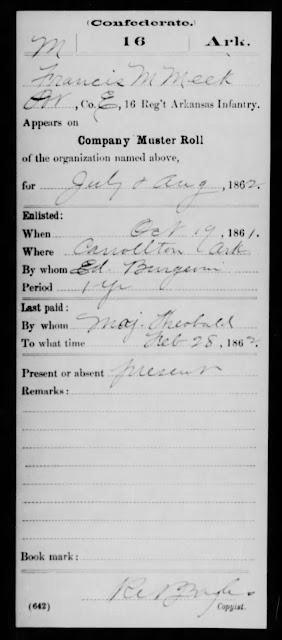 (Confederate.)
M | 16 | Ark.
Francis M Meek
Pvt, Co. E, 16 Reg't Arkansas Infantry.
Appears on
Company Muster Roll
of the organization named above,
for July & Aug, 1862.
Enlisted:
When Oct 19, 1861.
Where Carrollton Ark
By whom Ed.
Period 1 yr
Last paid:
By whom Maj. Theobald
To what time Feb 28, 1862.
Present or absent present
Remarks:
Book mark:
(642) Copyist.